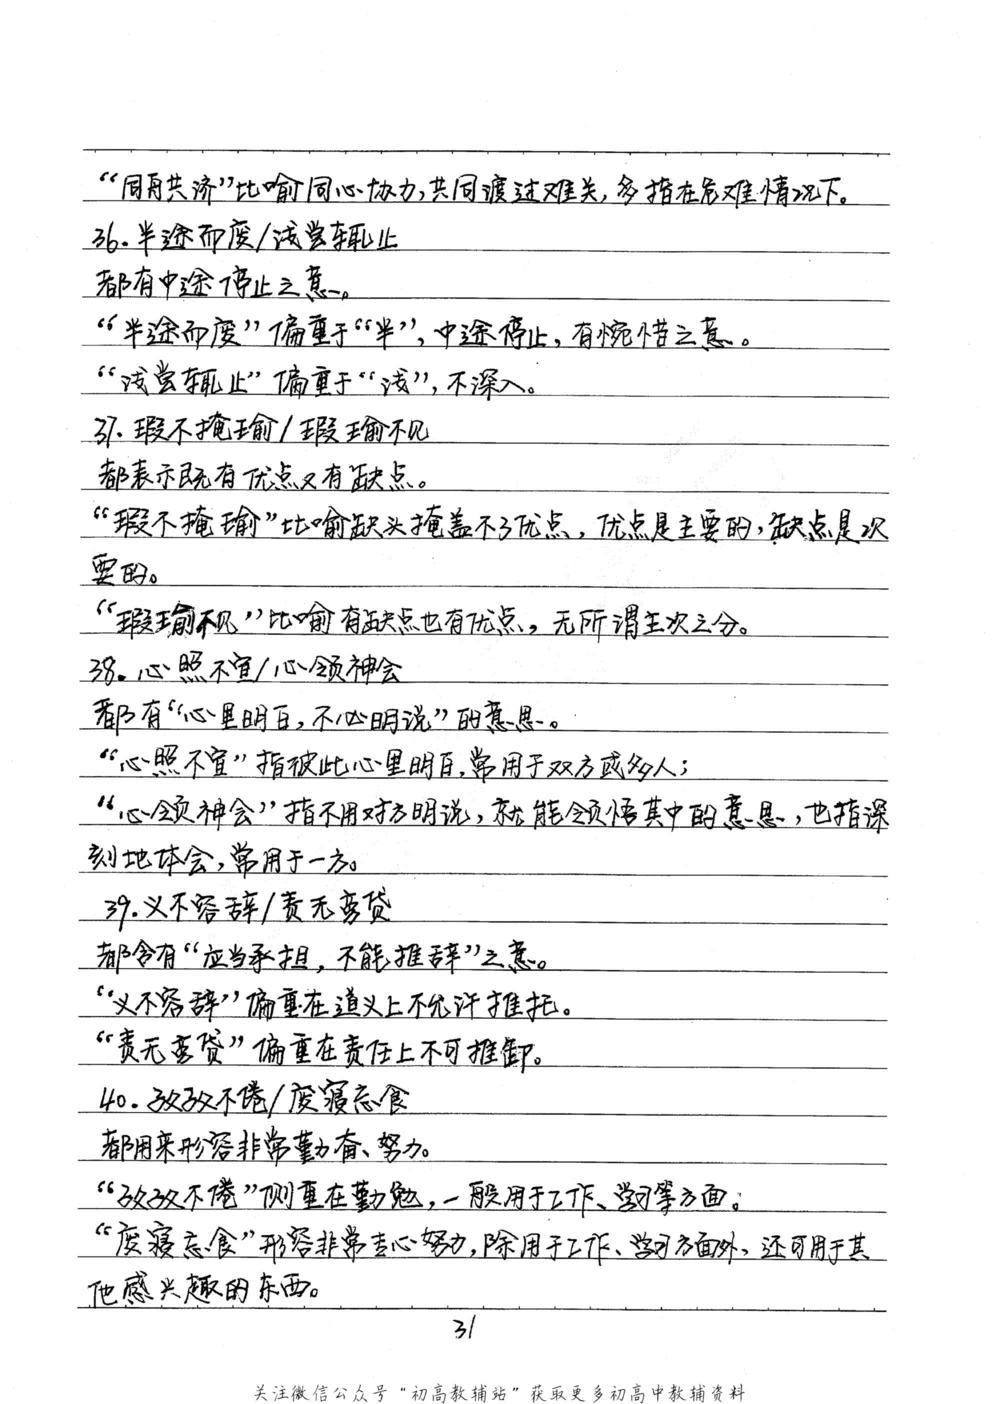 “同舟共济”比喻同心协力,共同渡过难关,多指在危难情况下。
36.半途而废/浅尝辄止
都有中途停止之意。
“半途而废”偏重于“半”,中途停止,有惋惜之意。
“浅尝辄止”偏重于“浅”,不深入。
37.瑕不掩瑜/瑕瑜不见
都表示既有优点又有缺点。
“瑕不掩瑜”比喻缺头掩盖不了优点,优点是主要的,缺点是次
要的。
“瑕瑜不见”比喻有缺点也有优点,无所谓主次之分。
38.心照不宣/心领神会
都有“心里明白,不必明说”的意思。
“心照不宣”指彼此心里明白,常用于双方或多人;
“心领神会”指不用对方明说,就能领悟其中的意思,也指深
刻地体会,常用于一方。
39.义不容辞/责无旁贷
都含有“应当承担,不能推辞”之意。
“义不容辞”偏重在道义上不允许推托。
“责无旁贷”偏重在责任上不可推卸。
40.孜孜不倦/废寝忘食
都用来形容非常勤奋、努力。
“孜孜不倦”侧重在勤勉,一般用于工作、学习等方面。
“废寝忘食”形容非常专心努力,除用于工作、学习方面外,还可用于其
他感兴趣的东西。
31
关注微信公众号“初高教辅站”获取更多初高中教辅资料